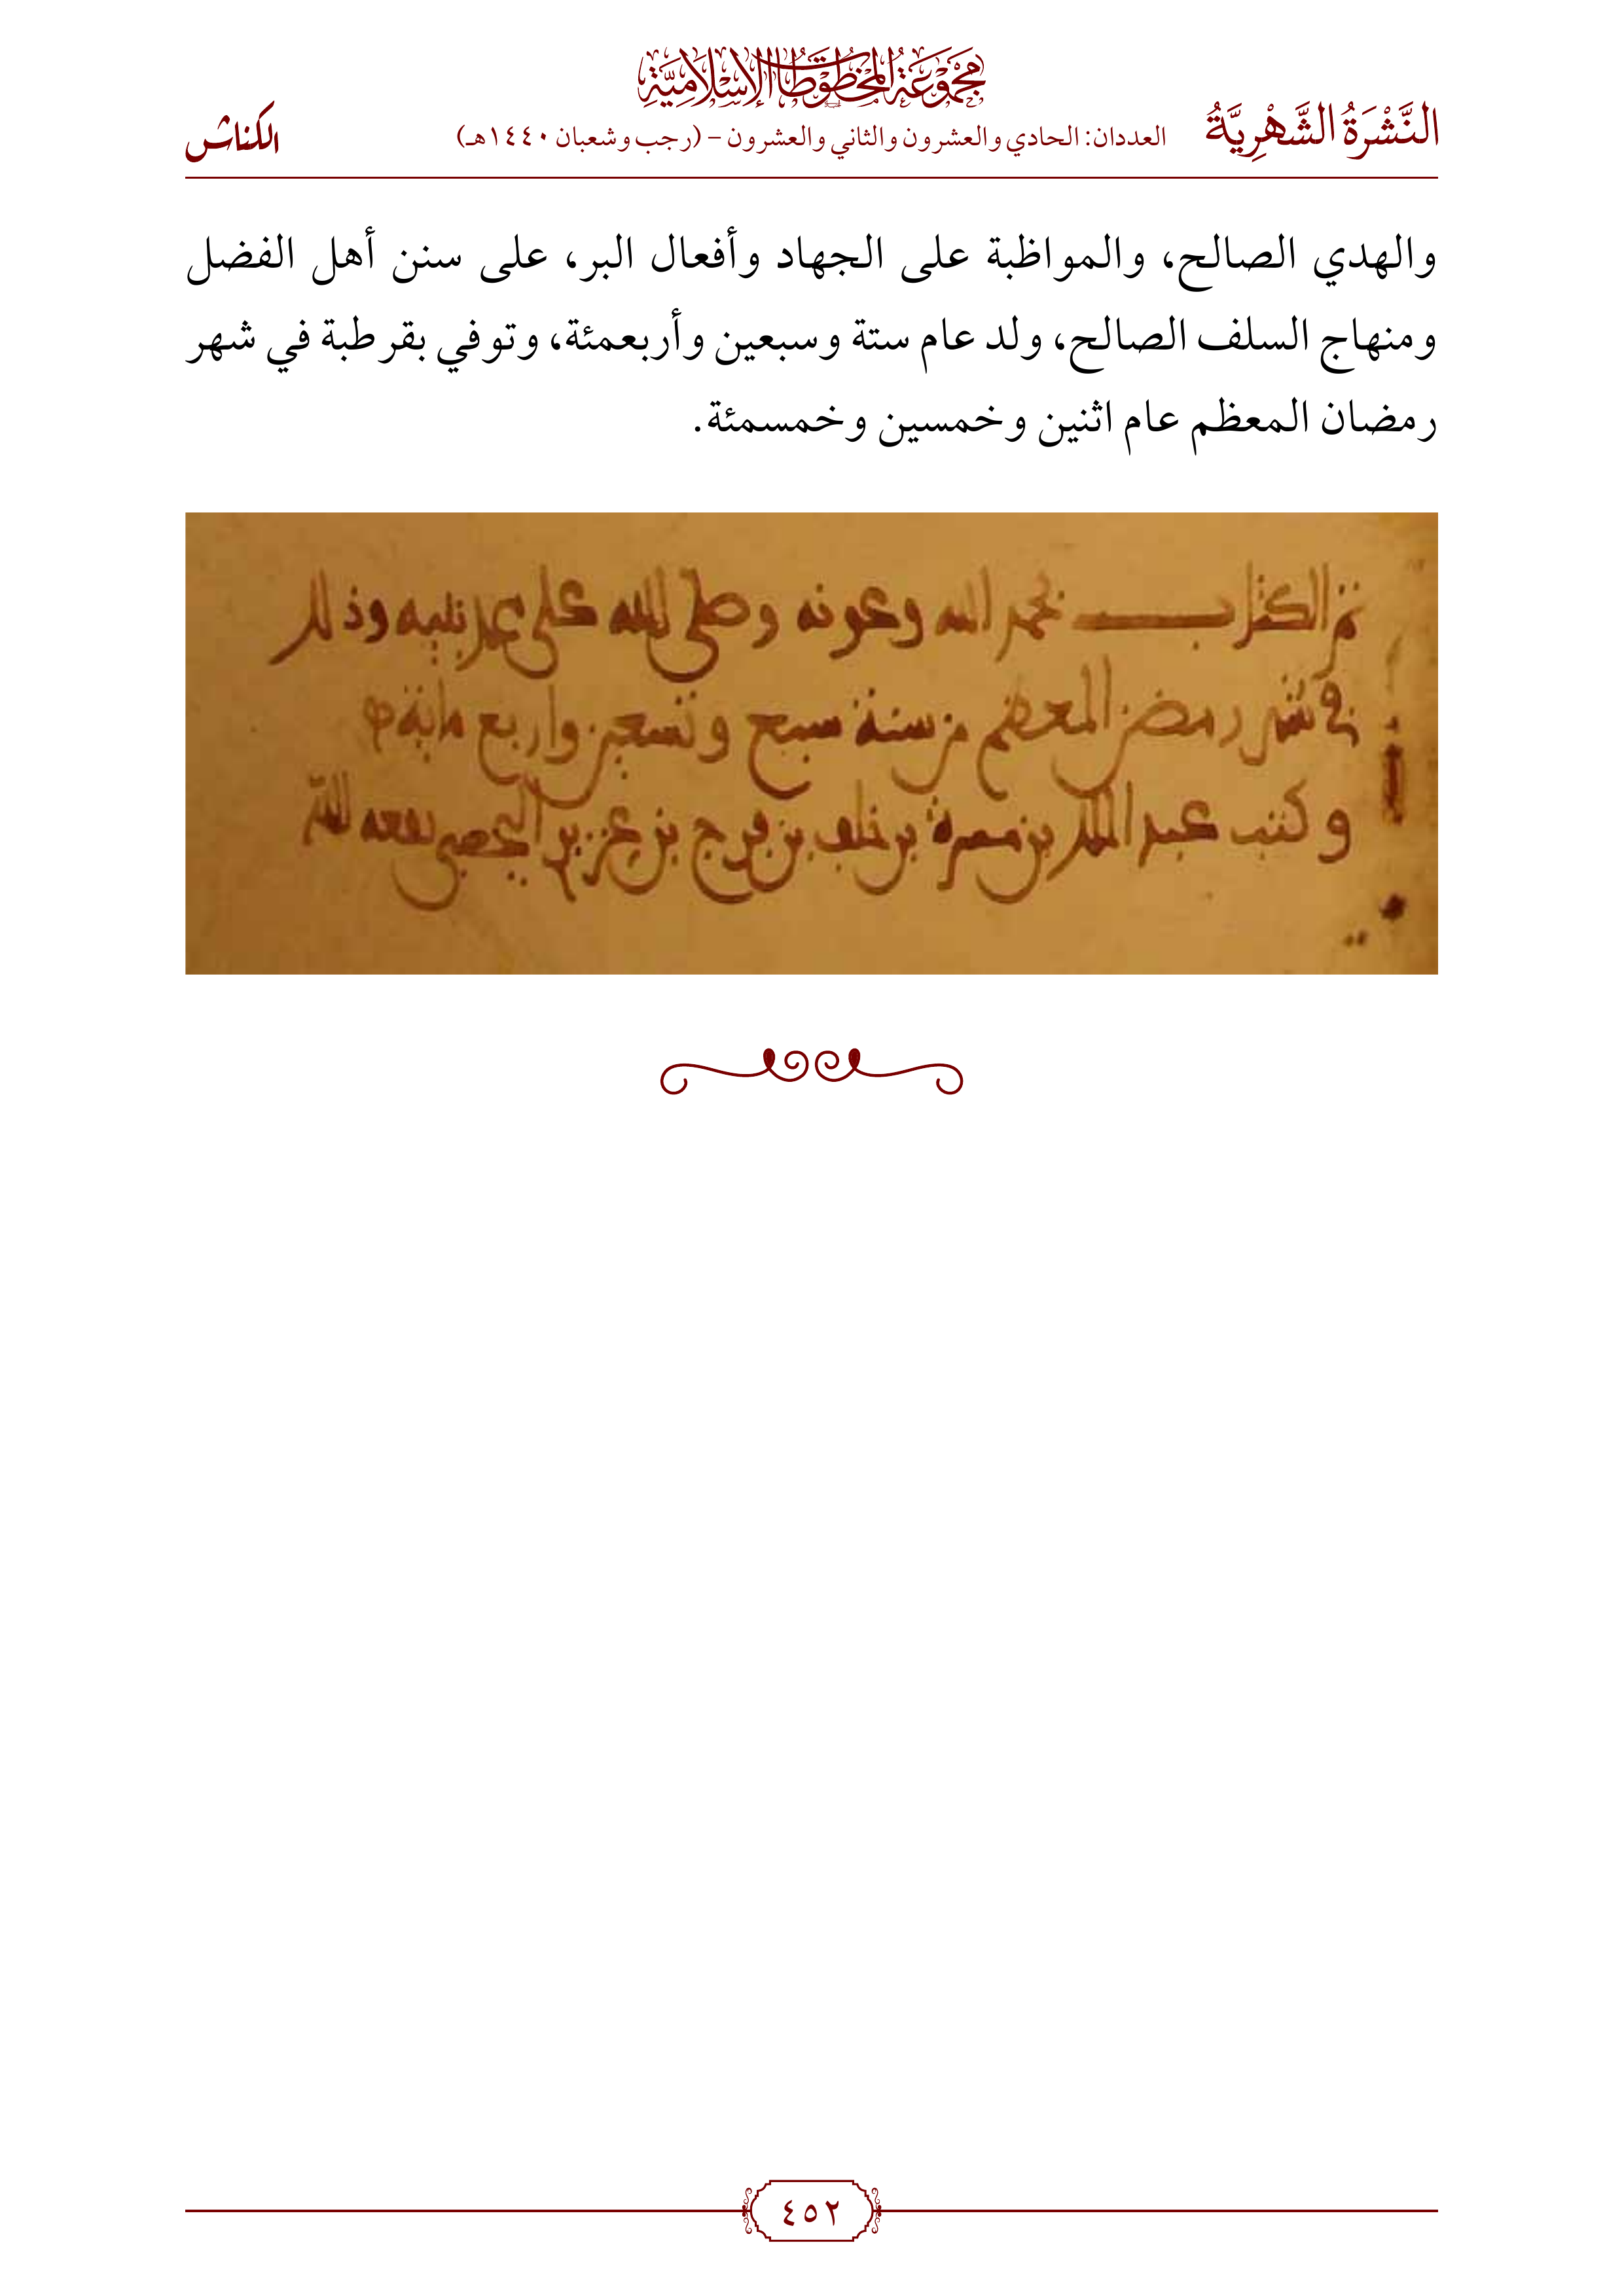 مَجْمُوعَةُ المَخْطُوطَاتِ الإِسْلَامِيَّةِ
النَّشْرَةُ الشَّهْرِيَّةُ
العددان: الحادي والعشرون والثاني والعشرون – (رجب وشعبان ١٤٤٠هـ)
الكناش
والهدي الصالح، والمواظبة على الجهاد وأفعال البر، على سنن أهل الفضل
ومنهاج السلف الصالح، ولد عام ستة وسبعين وأربعمئة، وتوفي بقرطبة في شهر
رمضان المعظم عام اثنين وخمسين وخمسمئة.
تم الكتاب بحمد الله وعونه وصلى الله على محمد نبيه وذلك
في شهر رمضن المعظم من سنة سبع وتسعين واربع ماية
وكتب عبد الملك بن مسرة بن خلف بن فرج بن عزيز اليحصبي نفعه الله
٤٥٢